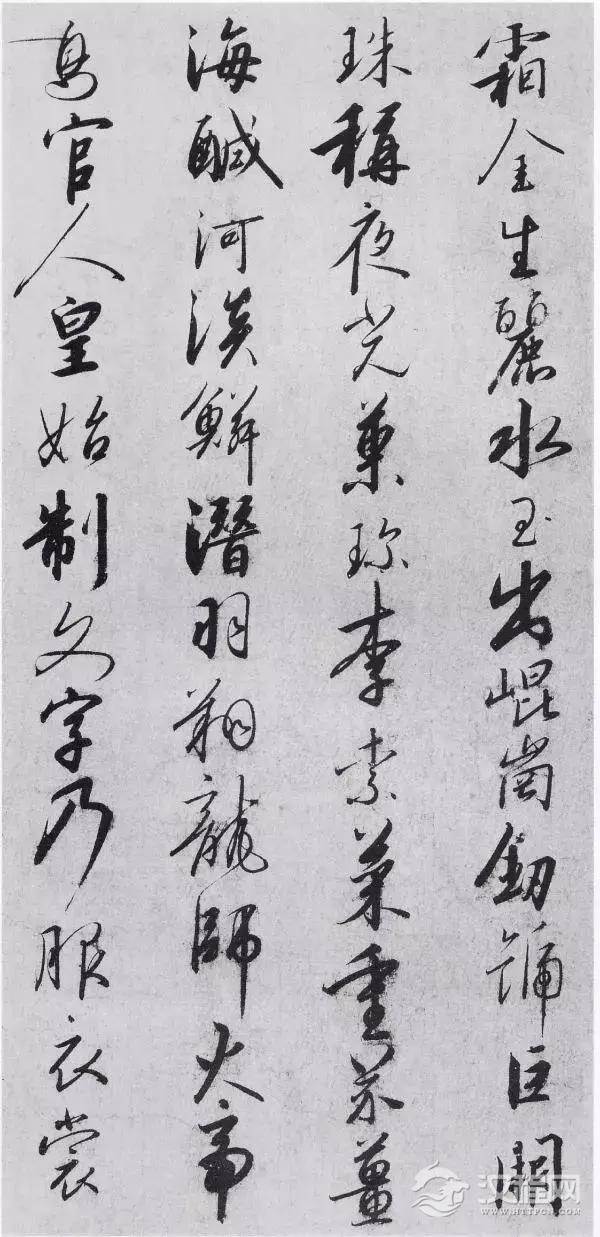 霜金生麗水玉出崐崗釼號巨闕
珠稱夜光菓珍李柰菜重芥薑
海醎河淡鱗潛羽翔龍師火帝
鳥官人皇始制文字乃服衣裳
汉程网
WWW.HTTPCN.COM